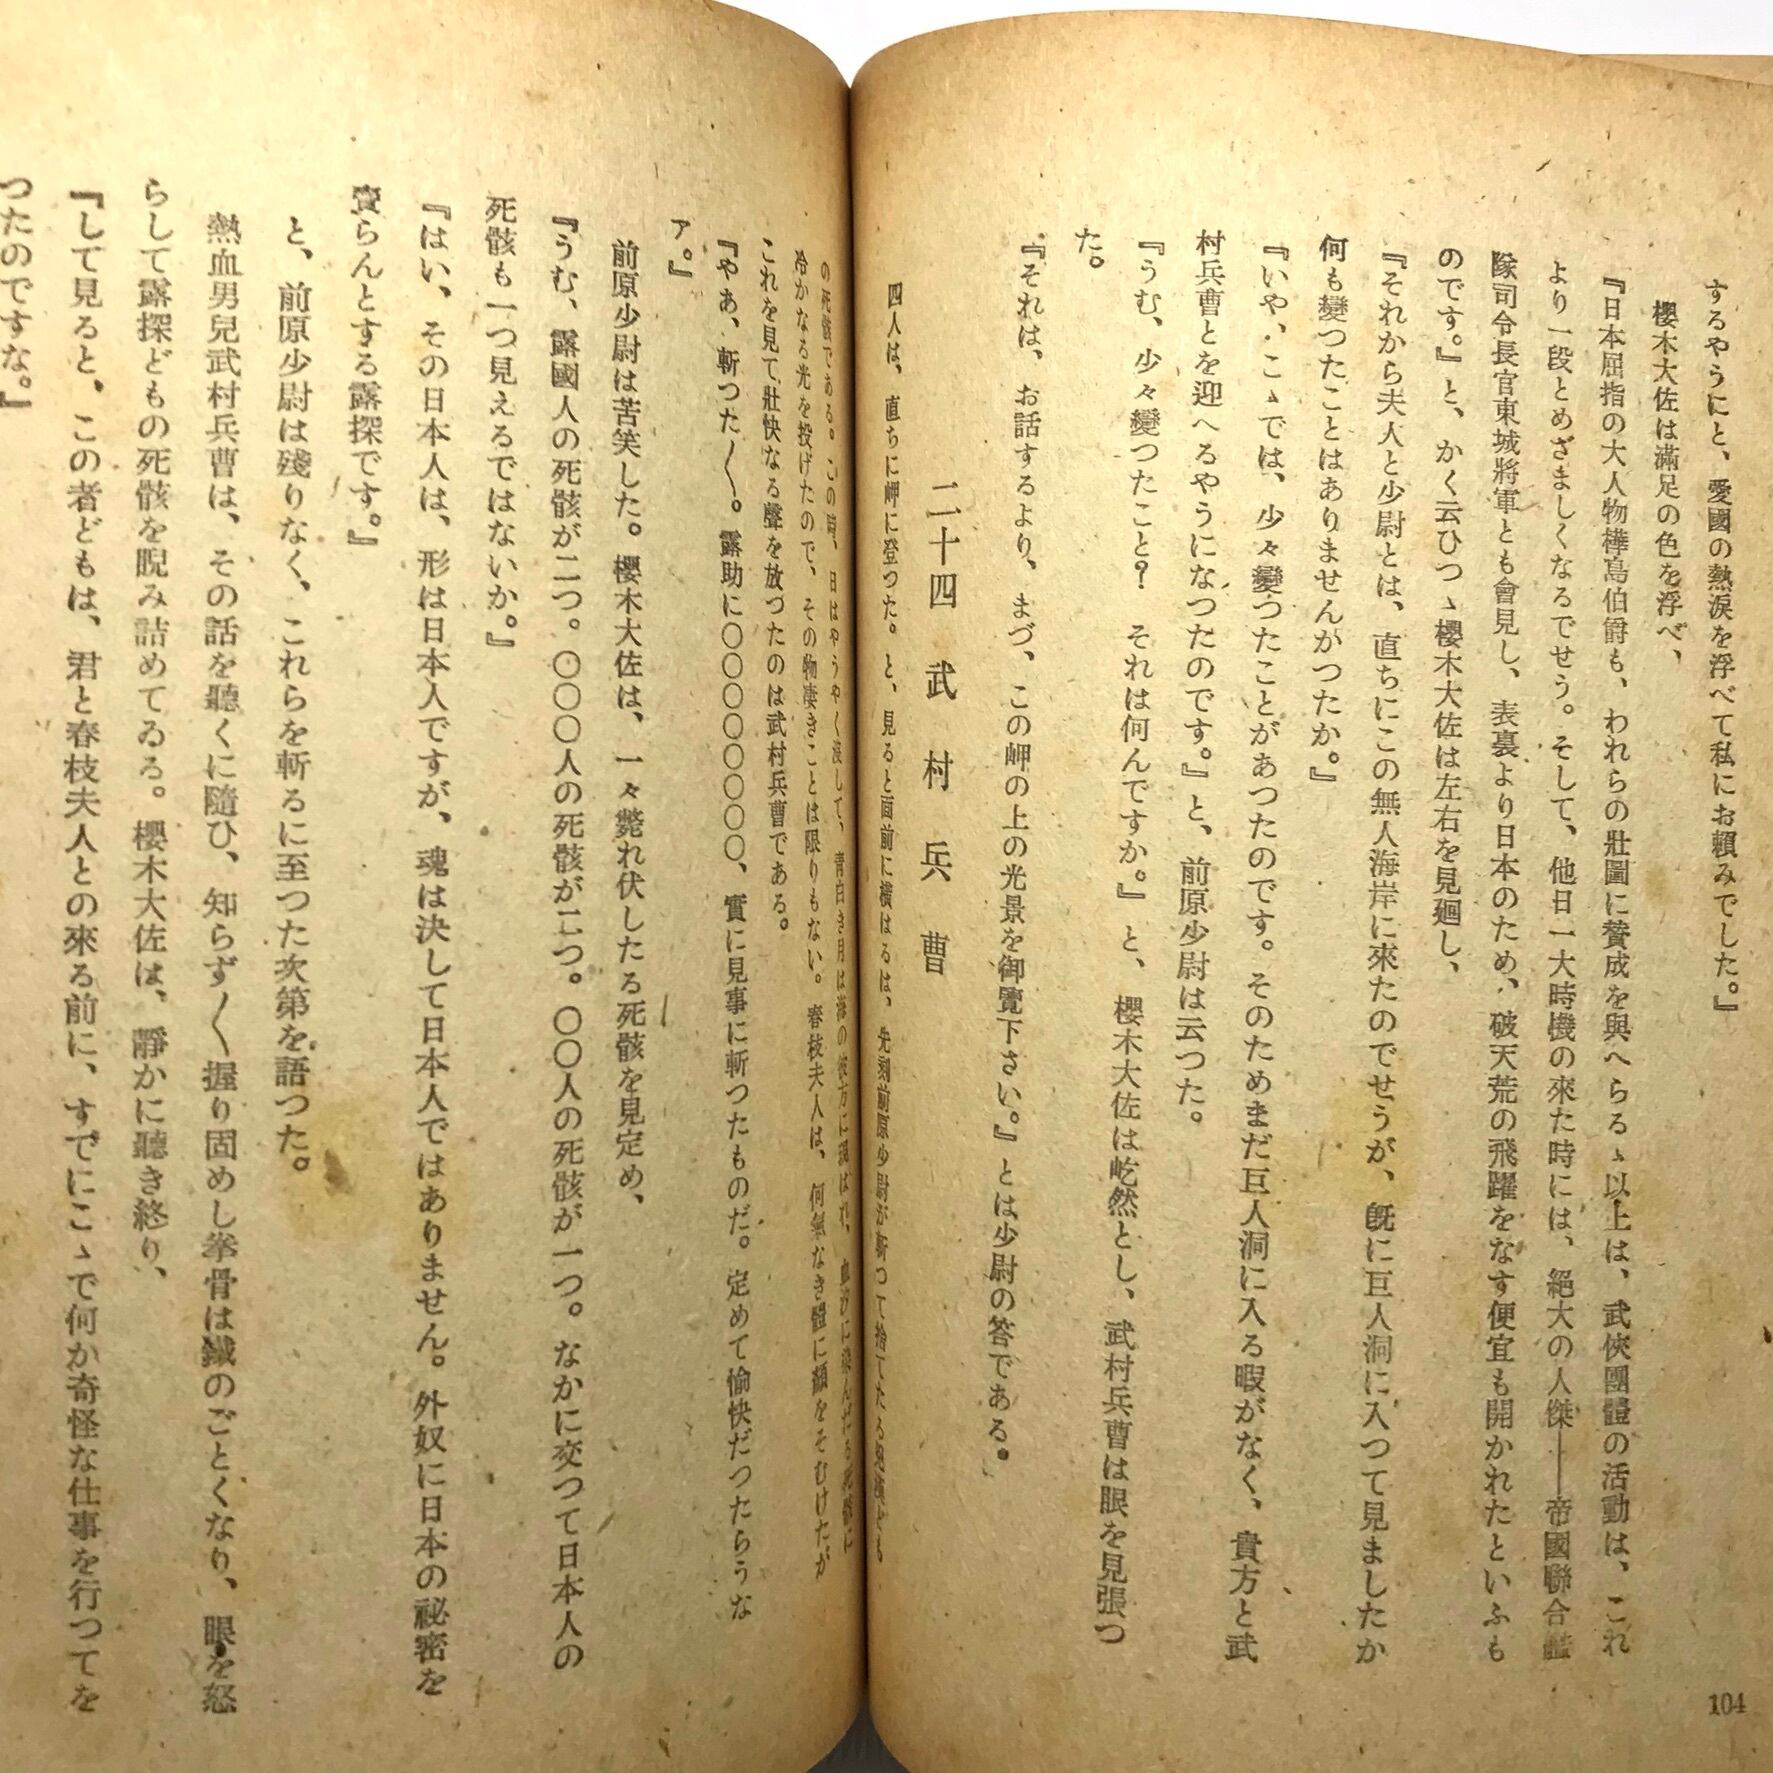 するやうにと、愛國の熱淚を浮べて私にお賴みでした。』
櫻木大佐は滿足の色を浮べ、
『日本屈指の大人物樺島伯爵も、われらの壯圖に贊成を與へらるゝ以上は、武俠團體の活動は、これ
より一段とめざましくなるでせう。そして、他日一大時機の來た時には、絕大の人傑――帝國聯合艦
隊司令長官東城將軍とも會見し、表裏より日本のため、破天荒の飛躍をなす便宜も開かれたといふも
のです。』と、かく云ひつゝ櫻木大佐は左右を見廻し、
『それから夫人と少尉とは、直ちにこの無人海岸に來たのでせうが、既に巨人洞に入つて見ましたか
何も變つたことはありませんがつたか。』
『いや、こゝでは、少々變つたことがあつたのです。そのためまだ巨人洞に入る暇がなく、貴方と武
村兵曹とを迎へるやうになつたのです。』と、前原少尉は云つた。
『うむ、少々變つたこと？　それは何んですか。』と、櫻木大佐は屹然とし、武村兵曹は眼を見張つ
た。
『それは、お話するより、まづ、この岬の上の光景を御覽下さい。』とは少尉の答である。
二十四　武村兵曹
四人は、直ちに岬に登つた。と、見ると面前に橫はるは、先刻前原少尉が斬つて捨てたる
の死骸である。この時、日はやうやく沒して、靑白き月は海の彼方に現はれ、血汐に染んだる死骸に
冷かなる光を投げたので、その物凄きことは限りもない。春枝夫人は、何氣なき體に顏をそむけたが
これを見て、壯快なる聲を放つたのは武村兵曹である。
『やあ、斬つた〱。露助に〇〇〇〇〇〇〇〇、實に見事に斬つたものだ。定めて愉快だつたらうな
ァ。』
前原少尉は苦笑した。櫻木大佐は、一々斃れ伏したる死骸を見定め、
『うむ、露國人の死骸が二つ。〇〇〇人の死骸が二つ。〇〇人の死骸が一つ。なかに交つて日本人の
死骸も一つ見えるではないか。』
『はい、その日本人は、形は日本人ですが、魂は決して日本人ではありません。外奴に日本の祕密を
賣らんとする露探です。』
と、前原少尉は殘りなく、これらを斬るに至つた次第を語つた。
熱血男兒武村兵曹は、その話を聽くに隨ひ、知らず〱握り固めし拳骨は鐵のごとくなり、眼を怒
らして露探どもの死骸を睨み詰めてゐる。櫻木大佐は、靜かに聽き終り、
『して見ると、この者どもは、君と春枝夫人との來る前に、すでにこゝで何か奇怪な仕事を行つてを
つたのですな。』
104